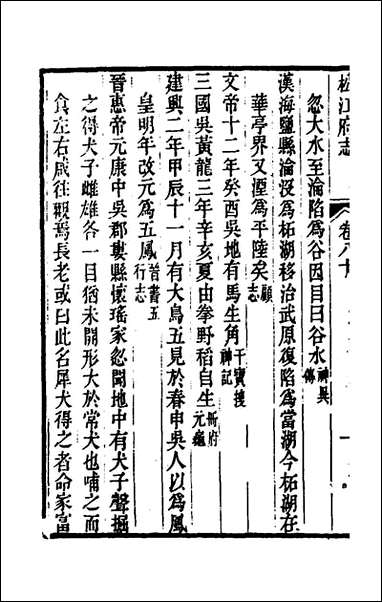 松江府志
卷八十
一
忽大水至淪陷為谷因目曰谷水神異傳
漢海鹽縣淪没為柘湖移治武原復陷為當湖今柘湖在
華亭界又湮為平陸矣顧志
文帝十二年癸酉吳地有馬生角干寶搜神記
三國吳黃龍三年辛亥夏由拳野稻自生冊府元龜
建興二年甲辰十一月有大鳥五見於春申吳人以為鳳
皇明年改元為五鳳晉書五行志
晉惠帝元康中吳郡婁縣懷瑤家忽聞地中有犬子聲掘
之得犬子雌雄各一目猶未開形大於常犬也哺之而
食左右咸往觀焉長老或曰此名犀犬得之者命家富